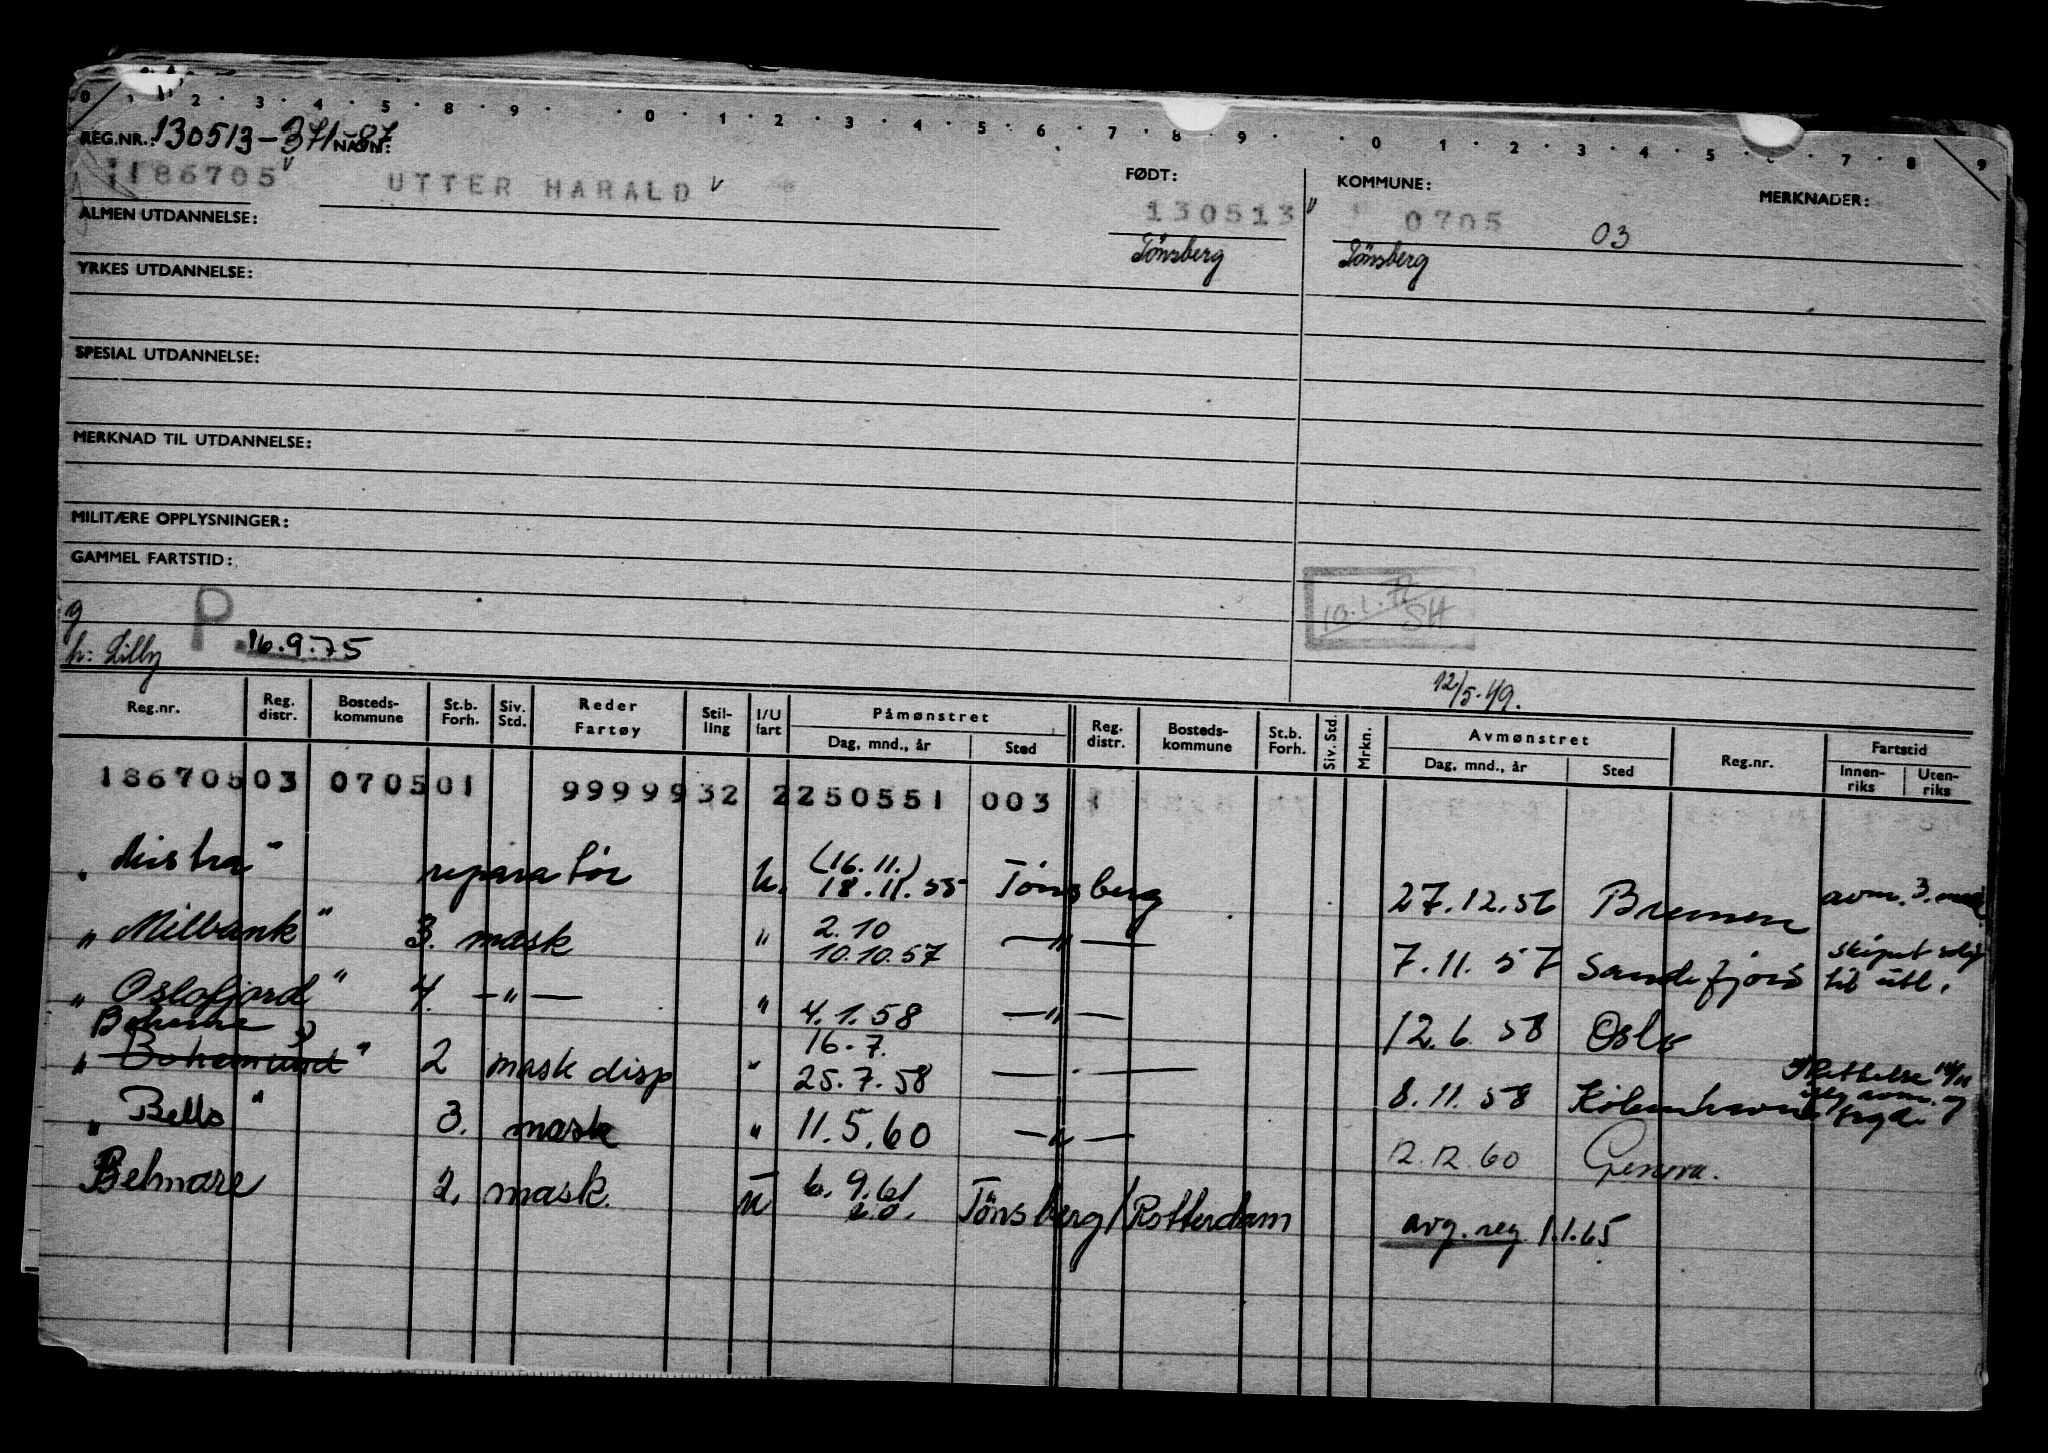 0 1 2 3 4 5 8 9 0 1 2 3 4 5 6 7 8 9 0 1 2 3 4 5 6 7 8 9
REG.NR.: 130513-371 87 NAVN:
1186705 UTTER HARALD
FØDT:
130513
Tönsberg
KOMMUNE:
0705 03
Tönsberg
MERKNADER:
ALMEN UTDANNELSE:
YRKES UTDANNELSE:
SPESIAL UTDANNELSE:
MERKNAD TIL UTDANNELSE:
MILITÆRE OPPLYSNINGER:
GAMMEL FARTSTID:
g
P. 16.9.75
h: Lilly
10.1. SH
12/5.49.
Reg.nr. Reg. distr. Bosteds-kommune St.b. Forh. Siv. Std. Reder Fartøy Stil-ling I/U fart Påmønstret Dag, mnd., år Sted Reg. distr. Bosteds-kommune St.b. Forh. Siv. Std. Mrkn. Avmønstret Dag, mnd., år Sted Reg.nr. Fartstid Innen-riks Uten-riks
18670503 070501 9999932 2250551 003
reparatör u. (16.11.) 18.11.55 Tönsberg 27.12.56 Bremen avm. 3.
" Milbank " 3. mask " 2.10 10.10.57 —"— 7.11.57 Sandefjord skipet solgt til utl.
" Oslofjord " 4. —"— " 4.1.58 —"— 12.6.58 Oslo
" Boheme Bohemund " 2 mask disp " 16.7. 25.7.58 —"— 8.11.58 Köbenhavn Rettelse avm. og
" Bello " 3. mask " 11.5.60 —"— 12.12.60 Genova.
Belmare 2. mask. u 6.9.61 Tönsberg/Rotterdam avg. reg 1.1.65